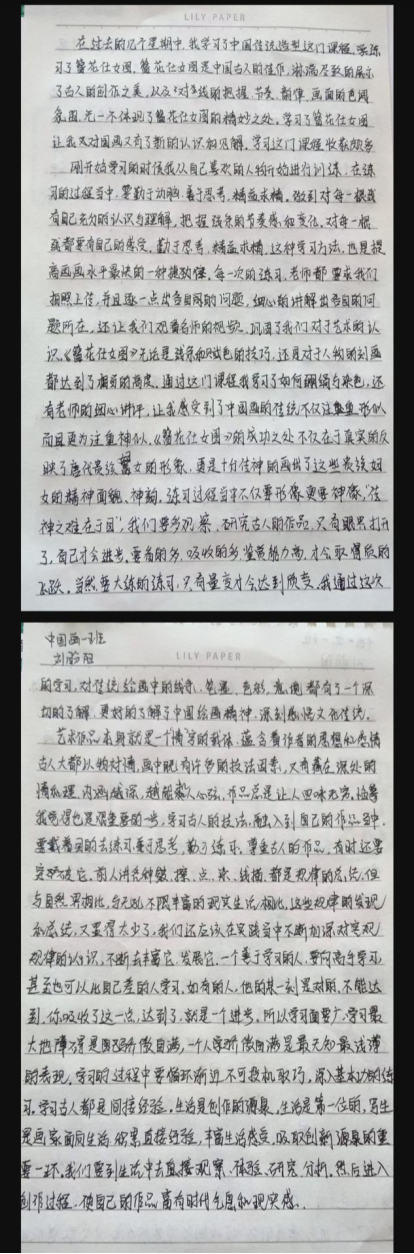 LILY PAPER
在过去的几个星期中,我学习了中国传统造型这门课程,练
习了簪花仕女图,簪花仕女图是中国古人的佳作,淋漓尽致的展示
了古人的创作之美,以及对线的把握,节奏,韵律,画面的色调
氛围,无一不体现了簪花仕女图的精妙之处,学习了簪花仕女图
让我又对国画又有了新的认识和见解,学习这门课程收获颇多
刚开始学习的时候我从自己喜欢的人物开始进行训练,在练
习的过程当中,要勤于动脑,善于思考,精益求精,做到对每一根线
有自己充分的认识与理解,把握线条的节奏感和变化,对每一根
线都要有自己的感受,勤于思考,精益求精,这种学习方法,也是提
高画画水平最快的一种,每一次的练习,老师都要求我们
拍照上传,并且逐一点出各自的问题,细心的讲解出各自的问
题所在,还让我们观看名师的视频,巩固了我们对于艺术的认
识,《簪花仕女图》无论是线条和设色的技巧,还是对于人物的刻画
都达到了很高的高度,通过这门课程我学习了如何勾线与染色,还
有老师的细心讲评,让我感受到了中国画的传统不仅注重形似
而且更为注重神似,《簪花仕女图》的成功之处不仅在于真实的反
映了唐代贵族妇女的形象,更是十分传神的画出了这些贵族妇
女的精神面貌、神韵,练习过程当中不仅要形像更要神像,“传
神之难在于目”,我们要多观察,研究古人的作品,只有眼界打开
了,自己才会进步,要看的多,吸收的多,鉴赏能力高,才会取得质的
飞跃,当然要大练的练习,只有量变才会达到质变,我通过这次
中国画一班
LILY PAPER
的学习,对传统绘画中的线条、笔墨、色彩,意境都有了一个深
切的了解,更好的了解了中国绘画精神,深刻感悟文化传统。
艺术作品本身就是一个情字的载体,蕴含着作者的思想和感情
古人大都以物对情,画中既有许多的技法因素,又有藏在深处的
情和理,内涵越深,越能震人心弦,作品总是让人回味无穷,临摹
我觉得也是很重要的一步,学习古人的技法,融入到自己的作品当中,
要带着目的去练习,善于思考,勤于练习,尊重古人的作品,有时还要
突破它,前人讲各种皴、擦、点、染、线描,都是规律的总结,但
与自然界相比,与无比不限丰富的现实生活相比,这些规律的发现
和总结,又显得太少了,我们还应该在实践当中不断加深对客观
规律的认识,不断去丰富它,发展它,一个善于学习的人,要向高手学习
甚至也可以比自己差的人学习,如有的人,他的某一刻是对的,不能达
到,你吸收了这一点,达到了,就是一个进步,所以学习面要广,学习最
大地障碍是因骄傲自满,一个人骄傲自满是最无知最浅薄
的表现,学习的过程中要循环渐近不可投机取巧,深入基本功的练
习,学习古人都是间接经验,生活是创作的源泉,生活是第一位的,写生
是画家面向生活,积累直接经验,丰富生活感受,吸取创新源泉的重
要一环,我们要到生活中去直接观察,体验,研究,分析,然后进入
创作过程,使自己的作品富有时代气息和现实感。